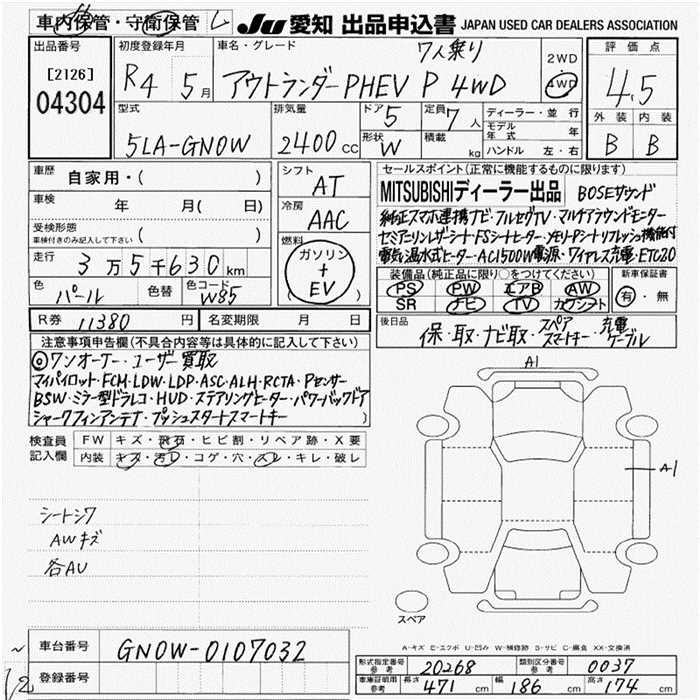 車内保管・守衛保管 レ
JU 愛知 出品申込書 JAPAN USED CAR DEALERS ASSOCIATION
出品番号
[2126]
04304
初度登録年月
R4 5月
車名・グレード
7人乗り
アウトランダーPHEV P 4WD
2WD
4WD
評価点
4.5
外装 内装
B B
型式
5LA-GN0W
排気量
2400cc
ドア 5
形状 W
定員 7人
積載 kg
ディーラー・並行
モデル年式 年
ハンドル 左・右
車歴 自家用・( )
車検 年 月( 日)
受検形態
車検付きのみ記入して下さい ( )
走行 3万5千630km
色 パール 色替 色コード W85
シフト
AT
冷房
AAC
燃料
ガソリン
+
EV
R券 11380 円 名変期限 月 日
セールスポイント(正常に機能するものに限ります)
MITSUBISHIディーラー出品 BOSEサウンド
純正スマホ連携ナビ・フルセグTV・マルチアラウンドモニター
セミアニリンレザーシート・FSシートヒーター・メモリーPシート・リフレッシュ機能付
電気温水式ヒーター・AC1500W電源・ワイヤレス充電・ETC2.0
装備品(純正品に限り○をつけてください)
PS PW エアB AW
SR ナビ TV カワシート
新車保証書
有・無
後日品 保・取・ナビ取・スペアスマートキー・充電ケーブル
注意事項申告欄(不具合内容等は具体的に記入して下さい)
◎ワンオーナー・ユーザー買取
マイパイロット・FCM・LDW・LDP・ASC・ALH・RCTA・Pセンサー
BSW・ミラー型ドラレコ・HUD・ステアリングヒーター・パワーバックドア
シャークフィンアンテナ・プッシュスタートスマートキー
検査員記入欄
FW キズ・飛石・ヒビ割・リペア跡・X要
内装 キズ・汚レ・コゲ・穴・スレ・キレ・破レ
シートシワ
AWキズ
各AU
A1
A1
スペア
A-キズ E-エクボ U-凹み W-補修跡 S-サビ C-腐食 XX-交換済
車台番号 GN0W-0107032
登録番号
~
12
形式指定番号 参考 20268 類別区分番号 参考 0037
車庫証明用 参考 長さ 471cm 幅 186cm 高さ 174cm